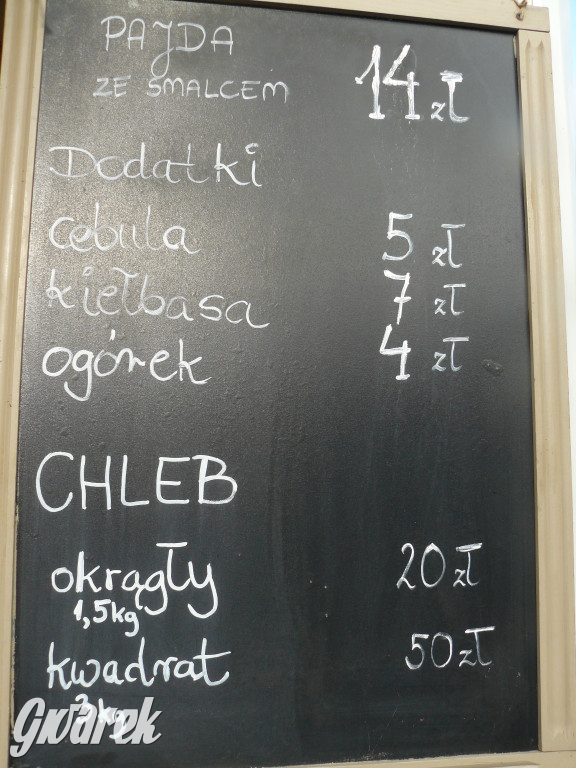 PAJDA
ZE SMALCEM 14 zł
Dodatki
cebula 5 zł
kiełbasa 7 zł
ogórek 4 zł
CHLEB
okrągły 20 zł
1,5kg
kwadrat 50 zł
3kg
Gwarek